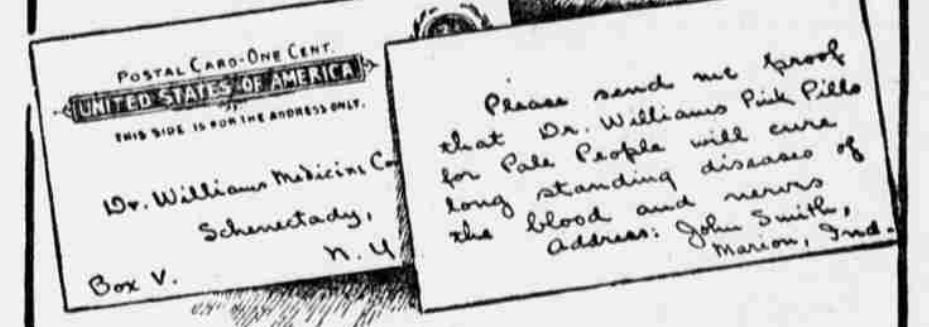 POSTAL CARD-ONE CENT.
UNITED STATES OF AMERICA
THIS SIDE IS FOR THE ADDRESS ONLY.
Dr. Williams Medicine Co
Schenectady,
N. Y
Box V.
Please send me proof
that Dr. Williams Pink Pills
for Pale People will cure
long standing diseases of
the blood and nerves
address: John Smith,
Marion, Ind.